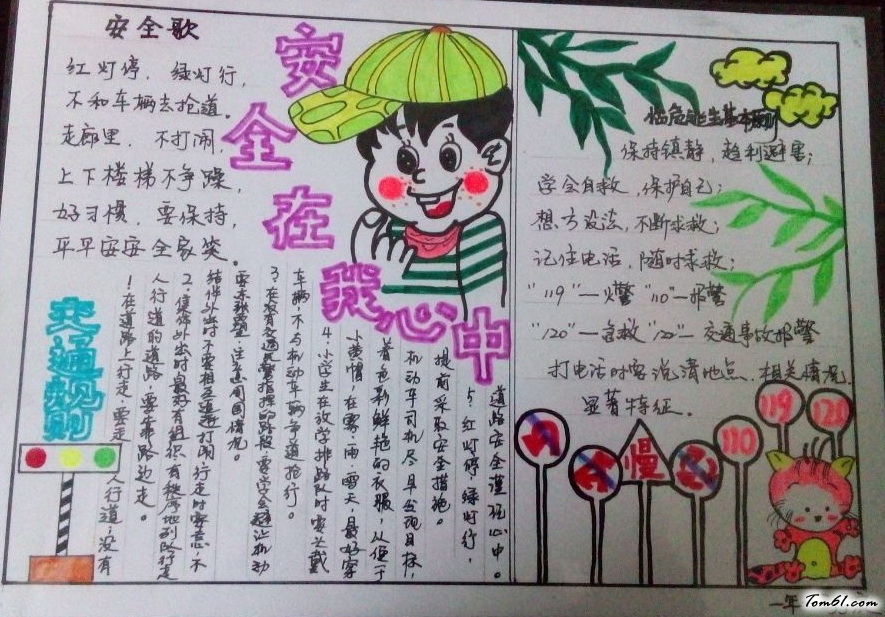 安全歌
红灯停，绿灯行，
不和车辆去抢道。
走廊里，不打闹，
上下楼梯不争躁，
好习惯，要保持，
平平安安全家笑。
安全在我心中
交通规则
1.在道路上行走，要走人行道，没有
人行道的道路，要靠路边走。
2.集体外出时，最好有组织有秩序地列队行走
结伴外出时，不要相互追逐打闹，行走时要专心，不
要东张西望，注意周围情况。
3.在没有交通民警指挥的路段，要学会避让机动
车辆，不与机动车辆争道抢行。
4.小学生在放学排路队时要头戴
小黄帽，在雾、雨、雪天，最好穿
着色彩鲜艳的衣服，以便于
机动车司机尽早发现目标，
提前采取安全措施。
5.红灯停，绿灯行，
道路安全谨记心中。
临危逃生基本原则
保持镇静，趋利避害；
学会自救，保护自己；
想方设法，不断求救；
记住电话，随时求救；
"119"—火警 "110"—报警
"120"—急救 "122"—交通事故报警
打电话时要说清地点、相关情况、
显著特征。
慢
110
119
120
一年
Tom61.com